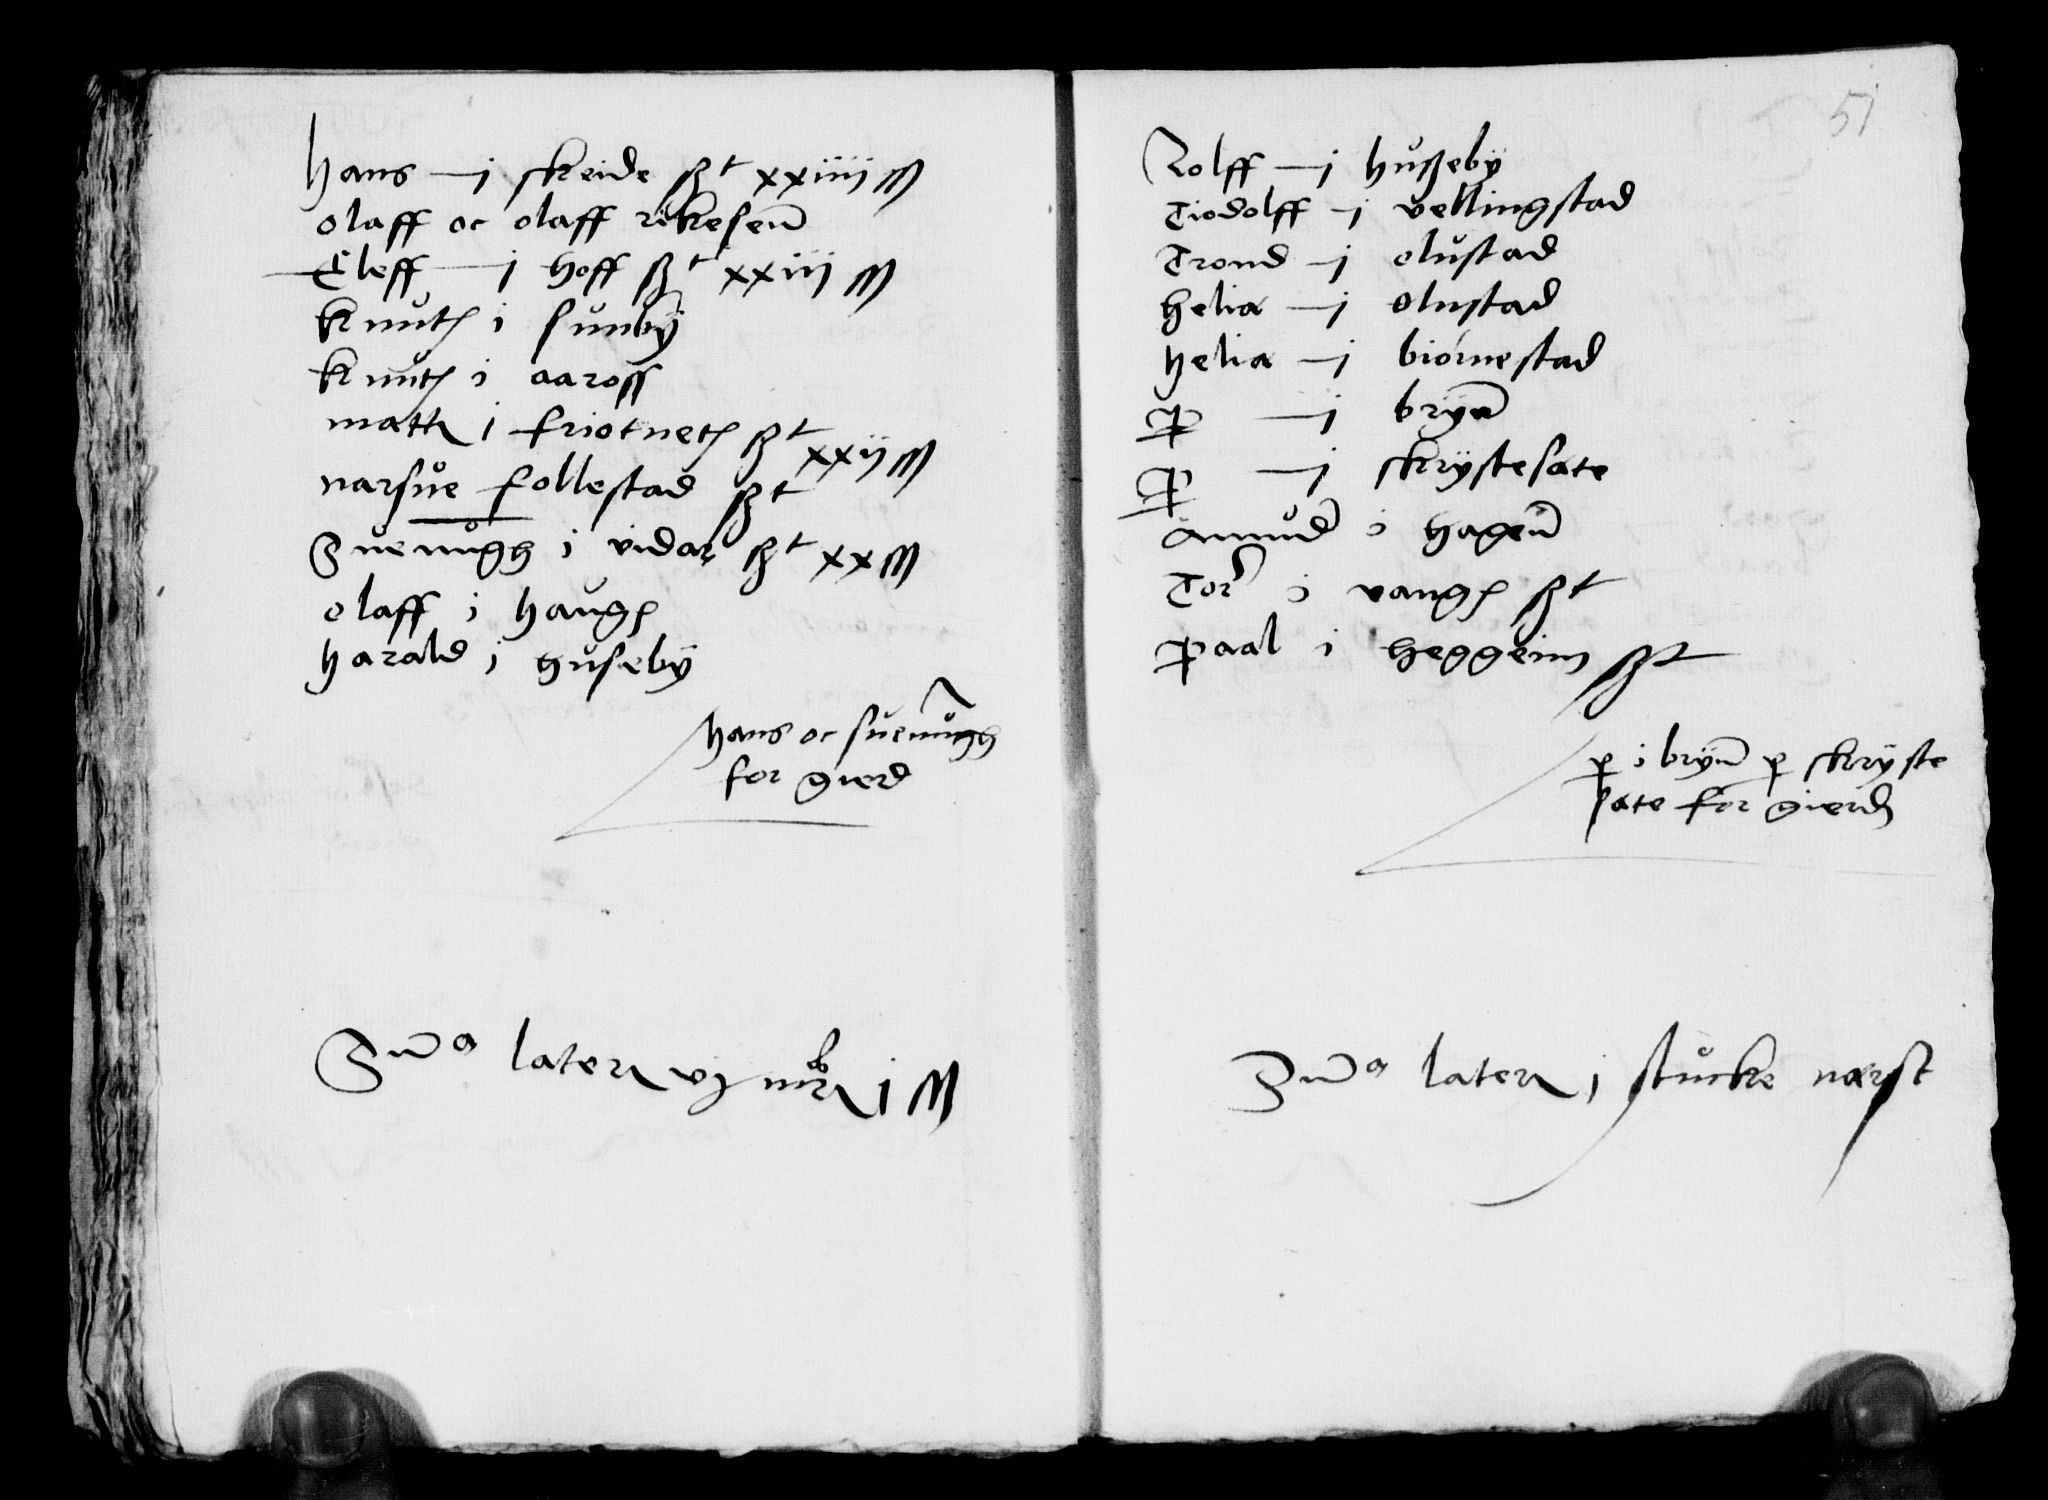 hans — i skeide sz t xxiiij ß
olaff oc olaff rikeseñ
Eleff — i hoff sz t xxiij ß
knut i sunbÿ
knut i aaross
matt i friotnet sz t xxij ß
narsue follestad sz t
Suenugh i vidar sz t xx ß
olaff i haug
harald i husebÿ
hans oc suenugh
for gierd
Sum̄a later vj mr i ß
51
Rolff — i hußebÿ
Tiodolff — i vellingstad
Trond — i olustad
helia — i olustad
helia — i biornestad
P — i brÿn̄
P — i skrÿstesate
Amud i hageñ
Tor i vang sz t
Paal i heggeim sz t
p i brÿn̄ p skrÿste
sate for gierd
Sum̄a later i stucke nærst